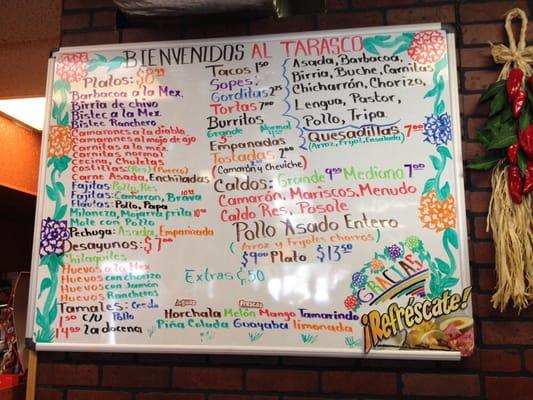 BIENVENIDOS AL TARASCO
Platos: $8.99
Barbacoa a la Mex
Birria de chivo
Bistec a la Mex
Bistec Ranchero
Camarones a la diabla
Camarones al mojo de ajo
Carnitas a la mex
Carnitas normal
Cecina, Chuletas
Costillas (Res)
Carne Asada, Enchiladas
Fajitas: Pollo, Res
Fajitas: Camaron, Brava
Flautas: Pollo, Papa
Milaneza, Mojarra frita
Mole con Pollo
Pechuga: Asada, Empanizada
Desayunos: $7.00
Chilaquiles
Huevos a la Mex
Huevos con chorizo
Huevos con Jamón
Huevos Rancheros
Tamales: Cerdo
1.50 c/u Pollo
14.99 la docena
Tacos
Sopes
Gorditas 2.50
Tortas
Burritos
Grande Normal
Empanadas
Tostadas
(Camarón y Cheviche)
Asada, Barbacoa,
Birria, Buche, Carnitas
Chicharrón, Chorizo,
Lengua, Pastor,
Pollo, Tripa.
Quesadillas 7.00
(Arroz, Frijol, Ensalada)
Caldos: Grande 9.99 Mediano 7.00
Camarón, Mariscos, Menudo
Caldo Res, Posole
Pollo Asado Entero
(Arroz y Frijoles Charros)
Plato $13.50
Extras
Horchata Melón Mango Tamarindo
Piña Colada Guayaba limonada
GRACIAS
¡Refréscate!